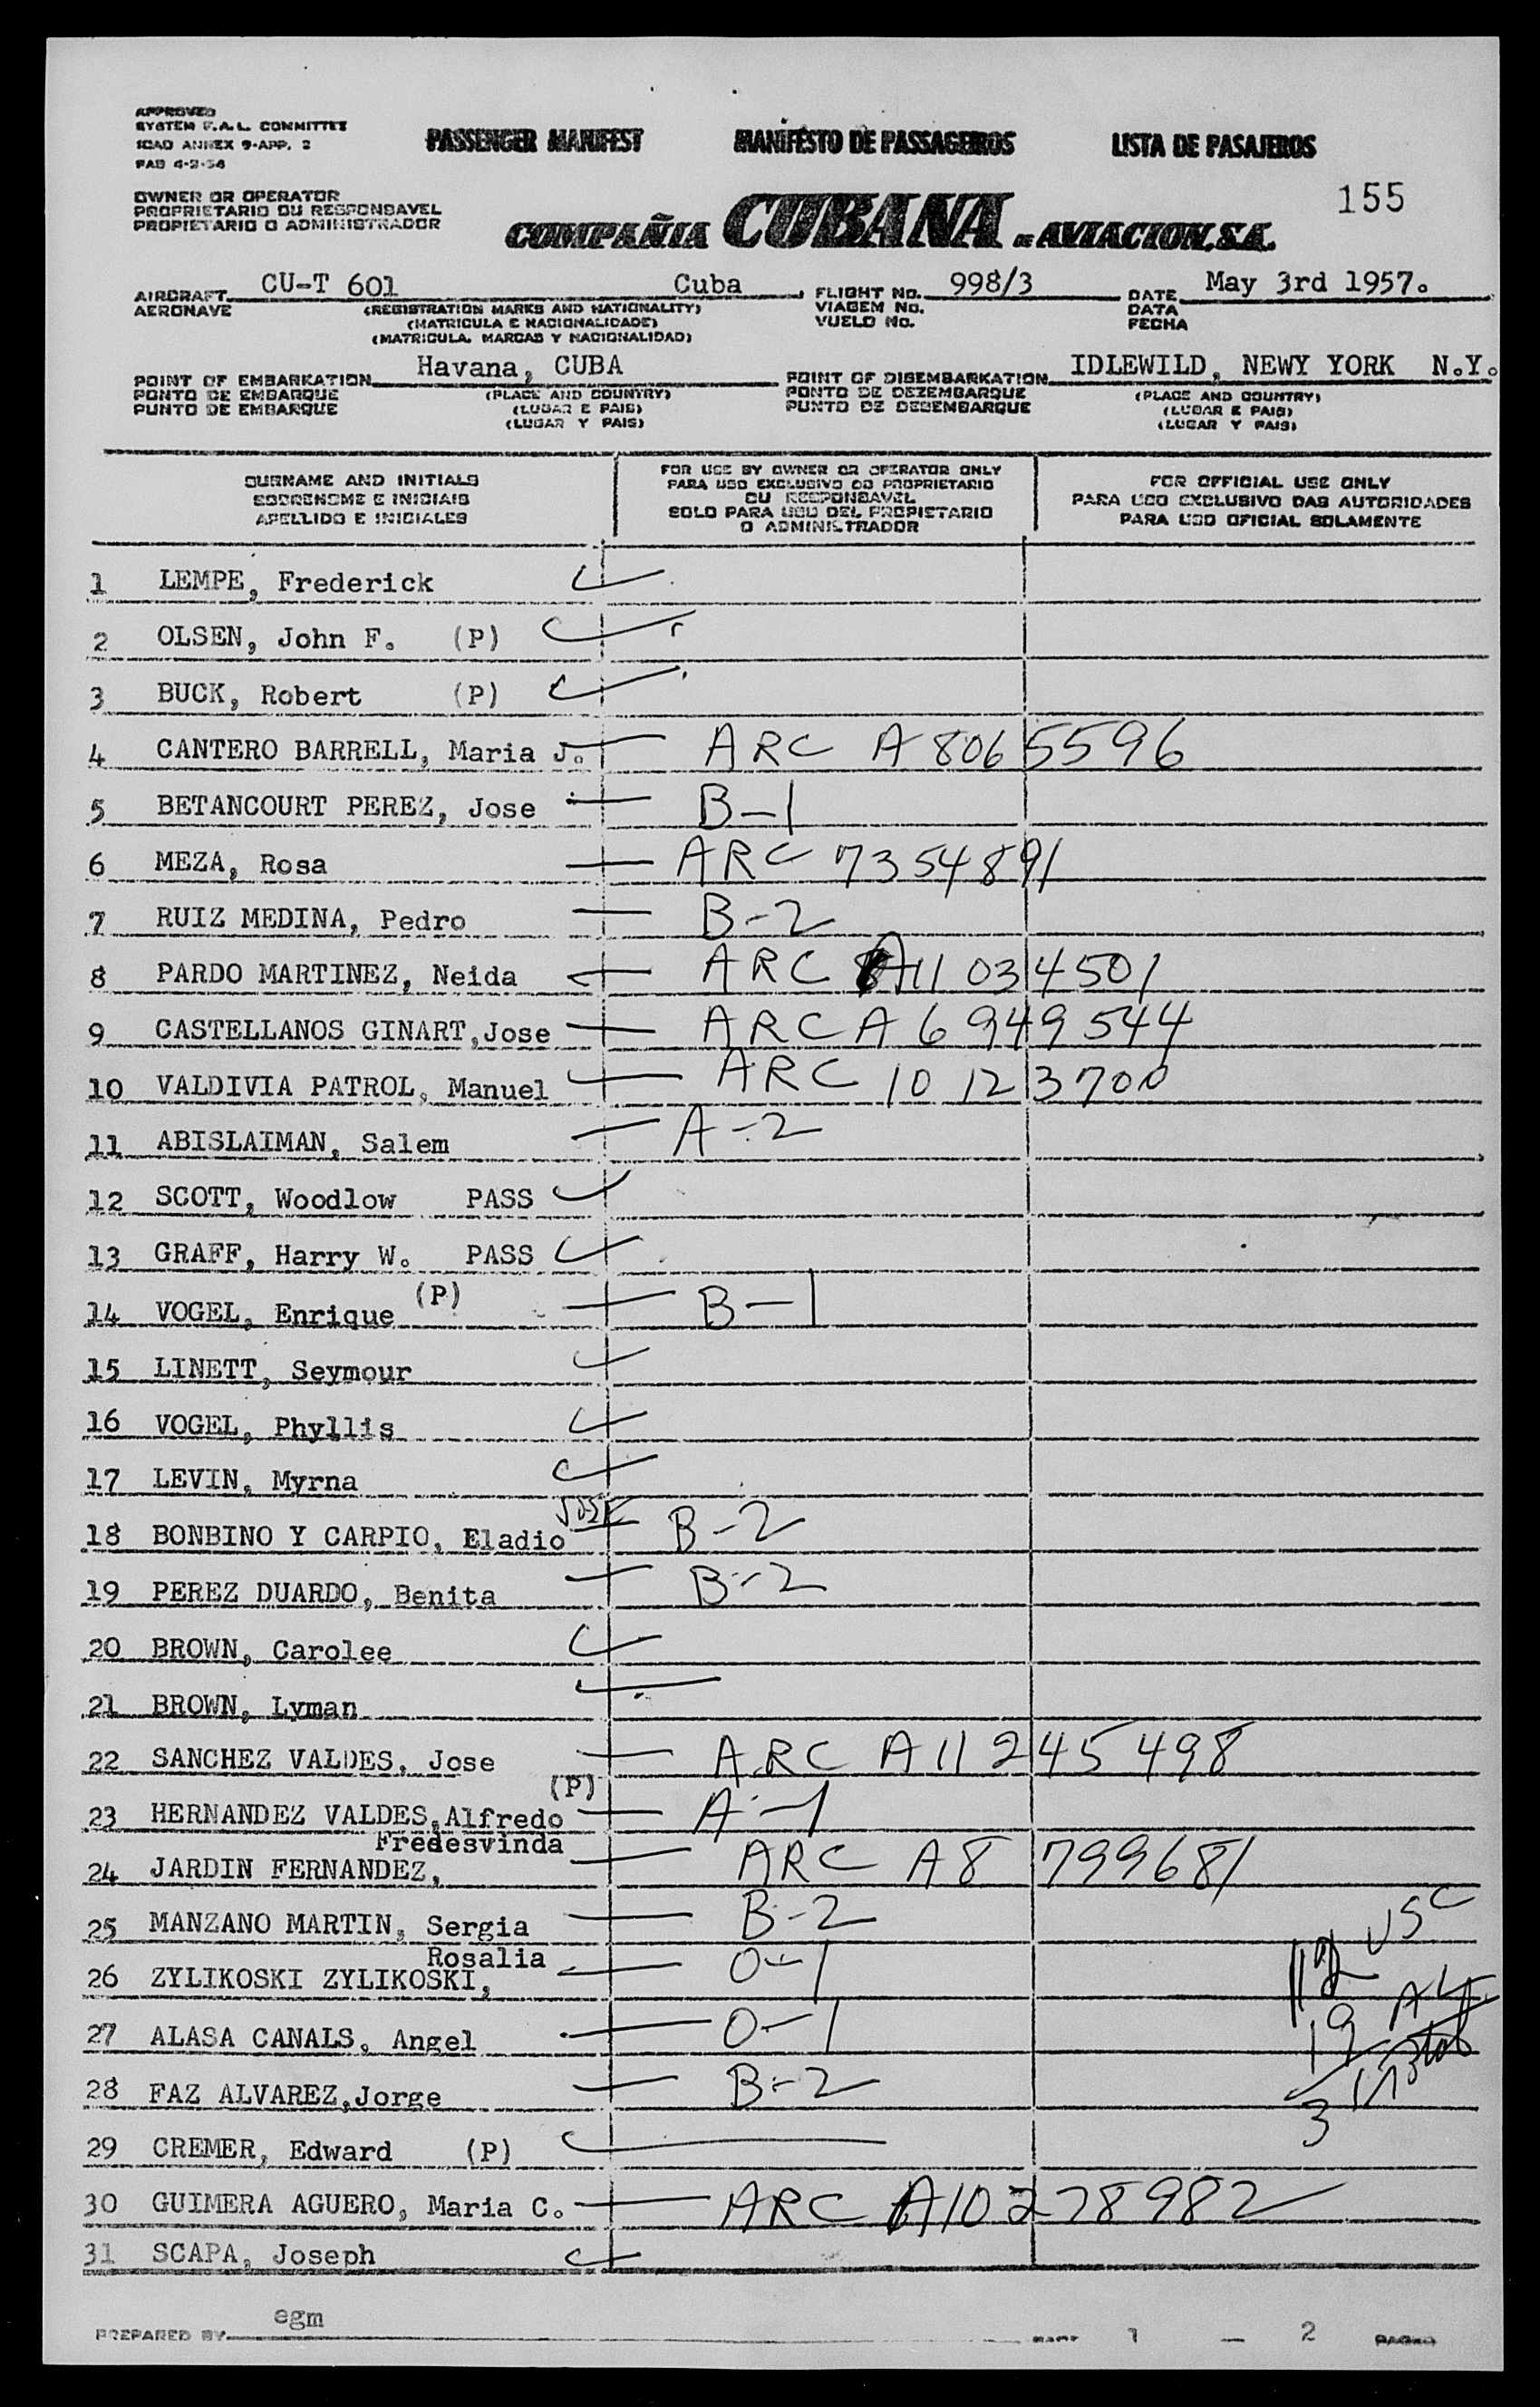 APPROVED
SYSTEM F.A.L. COMMITTEE
ICAO ANNEX 9-APP. 2
FAB 4-2-54
PASSENGER MANIFEST MANIFESTO DE PASSAGEIROS LISTA DE PASAJEROS
155
OWNER OR OPERATOR
PROPRIETARIO OU RESPONSAVEL
PROPIETARIO O ADMINISTRADOR
COMPAÑIA CUBANA DE AVIACION, S.A.
AIRCRAFT CU-T 601 Cuba FLIGHT No. 998/3 DATE May 3rd 1957.
AERONAVE (REGISTRATION MARKS AND NATIONALITY) VIAGEM No. DATA
(MATRICULA E NACIONALIDADE) VUELO No. FECHA
(MATRICULA. MARCAS Y NACIONALIDAD)
POINT OF EMBARKATION Havana, CUBA POINT OF DISEMBARKATION IDLEWILD, NEWY YORK N.Y.
PONTO DE EMBARQUE (PLACE AND COUNTRY) PONTO DE DEZEMBARQUE (PLACE AND COUNTRY)
PUNTO DE EMBARQUE (LUGAR E PAIS) PUNTO DE DESEMBARQUE (LUGAR E PAIS)
(LUGAR Y PAIS) (LUGAR Y PAIS)
SURNAME AND INITIALS
SOBRENOME E INICIAIS
APELLIDO E INICIALES
FOR USE BY OWNER OR OPERATOR ONLY
PARA USO EXCLUSIVO DO PROPRIETARIO
OU RESPONSAVEL
SOLO PARA USO DEL PROPIETARIO
O ADMINISTRADOR
FOR OFFICIAL USE ONLY
PARA USO EXCLUSIVO DAS AUTORIDADES
PARA USO OFICIAL SOLAMENTE
1 LEMPE, Frederick
2 OLSEN, John F. (P)
3 BUCK, Robert (P)
4 CANTERO BARRELL, Maria J. ARC A 8065596
5 BETANCOURT PEREZ, Jose B-1
6 MEZA, Rosa ARC 7354891
7 RUIZ MEDINA, Pedro B-2
8 PARDO MARTINEZ, Neida ARC A11 034501
9 CASTELLANOS GINART,Jose ARC A 6949544
10 VALDIVIA PATROL, Manuel ARC 10 123700
11 ABISLAIMAN, Salem A-2
12 SCOTT, Woodlow PASS
13 GRAFF, Harry W. PASS
14 VOGEL, Enrique (P) B-1
15 LINETT, Seymour
16 VOGEL, Phyllis
17 LEVIN, Myrna
18 BONBINO Y CARPIO, Eladio JOSE B-2
19 PEREZ DUARDO, Benita B-2
20 BROWN, Carolee
21 BROWN, Lyman
22 SANCHEZ VALDES, Jose ARC A11 245 498
23 HERNANDEZ VALDES,Alfredo (P) A-1
24 JARDIN FERNANDEZ, Fredesvinda ARC A8 799681
25 MANZANO MARTIN, Sergia B-2
26 ZYLIKOSKI ZYLIKOSKI, Rosalia O-1
27 ALASA CANALS, Angel O-1
28 FAZ ALVAREZ,Jorge B-2
12 USC
19
29 CREMER, Edward (P)
30 GUIMERA AGUERO, Maria C. ARC A10 278982
31 SCAPA, Joseph
PREPARED BY egm
1 — 2 PAGES